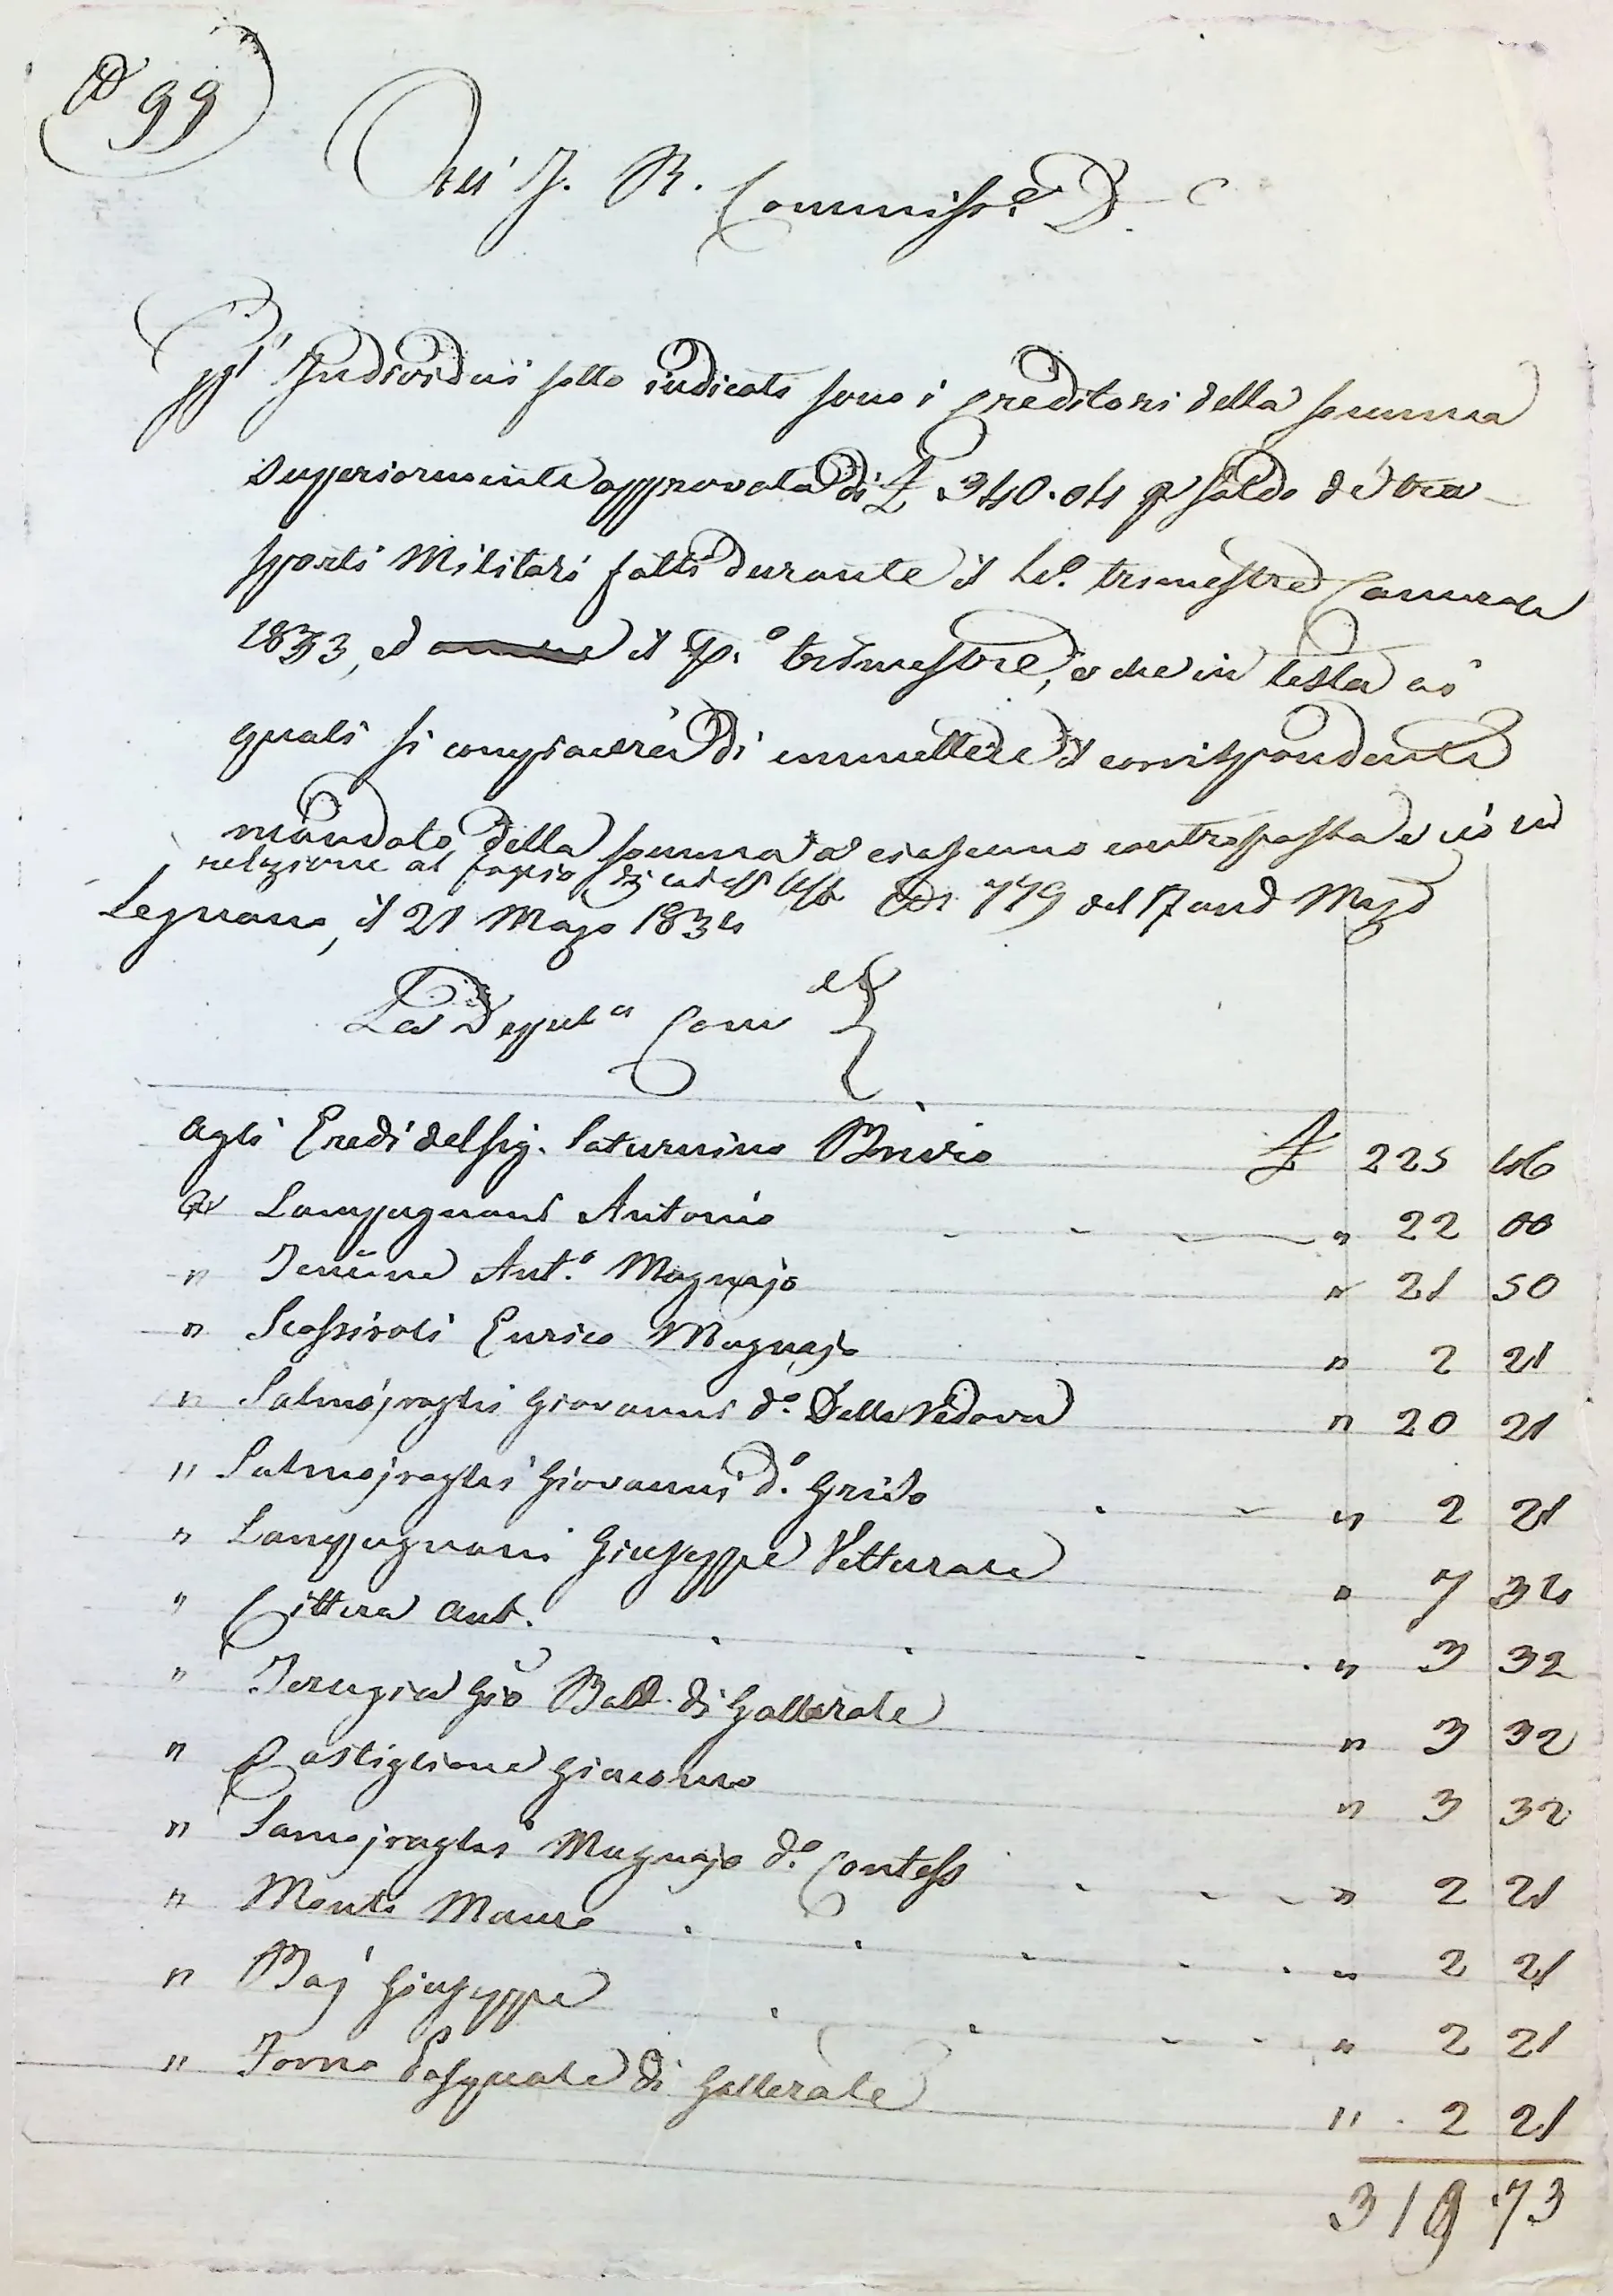 N 99
All' I. R. Commiss.e D.
Gl' Individui sotto indicati sono i creditori della somma
superiormente approvata di £ 340.04 p saldo de' tra-
sporti Militari fatti durante il 4.o trimestre Camerale
1833, ed il p.o trimestre, e che in testa ai
quali si compiacerà di emmettere il corrispondente
mandato della somma a ciascuno contrapposta e ciò in
relazione al foglio di 779 del 17 and Maggo
Legnano, il 21 Maggo 1834
La Deput.a Com.le
Agli Eredi del Sig. Saturnino Brivio £ 225 46
a Lampugnani Antonio " 22 00
" Ant.o Mugnajo " 21 50
" Scossiroli Enrico Mugnajo " 2 21
" Salmojraghi Giovanni d.o Della Vedova " 20 21
" Salmojraghi Giovanni d.o Grido " 2 21
" Lampugnani Giuseppe Vetturale " 7 34
" Cittera Ant. " 3 32
" Terugia Gio Batt. di Gallarate " 3 32
" Castiglione Giacomo " 3 32
" Samojraghi Mugnajo d.o Contess " 2 21
" Monti Mauro " 2 21
" Baj Giuseppe " 2 21
" Torno Pasquale di Gallerate " 2 21
319.73